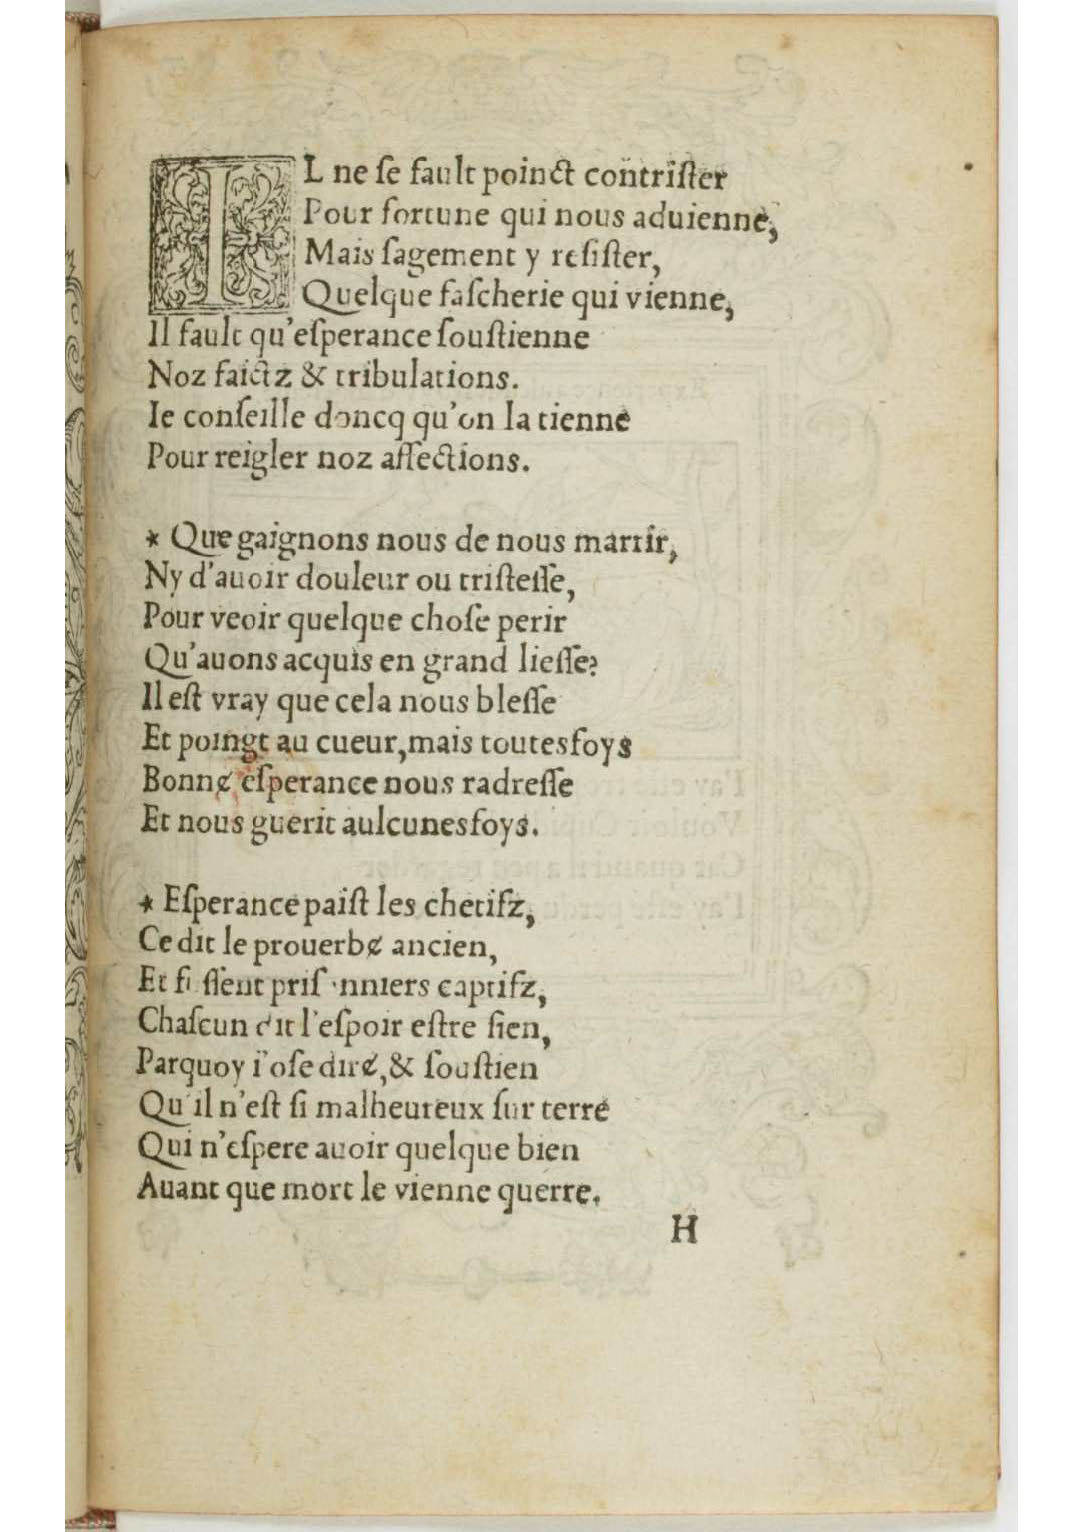 IL ne se fault poinct contrister
Pour fortune qui nous aduienne,
Mais sagement y resister,
Quelque fascherie qui vienne,
Il fault qu'esperance soustienne
Noz faictz & tribulations.
Ie conseille doncq qu'on la tienne
Pour reigler noz affections.
* Que gaignons nous de nous martir,
Ny d'auoir douleur ou tristesse,
Pour veoir quelque chose perir
Qu'auons acquis en grand liesse?
Il est vray que cela nous blesse
Et poingt au cueur, mais toutesfoys
Bonne esperance nous radresse
Et nous guerit aulcunesfoys.
* Esperance paist les chetifz,
Ce dit le prouerbe ancien,
Et fussent prisonniers captifz,
Chascun dit l'espoir estre sien,
Parquoy i'ose dire, & soustien
Qu'il n'est si malheureux sur terre
Qui n'espere auoir quelque bien
Auant que mort le vienne querre.
H